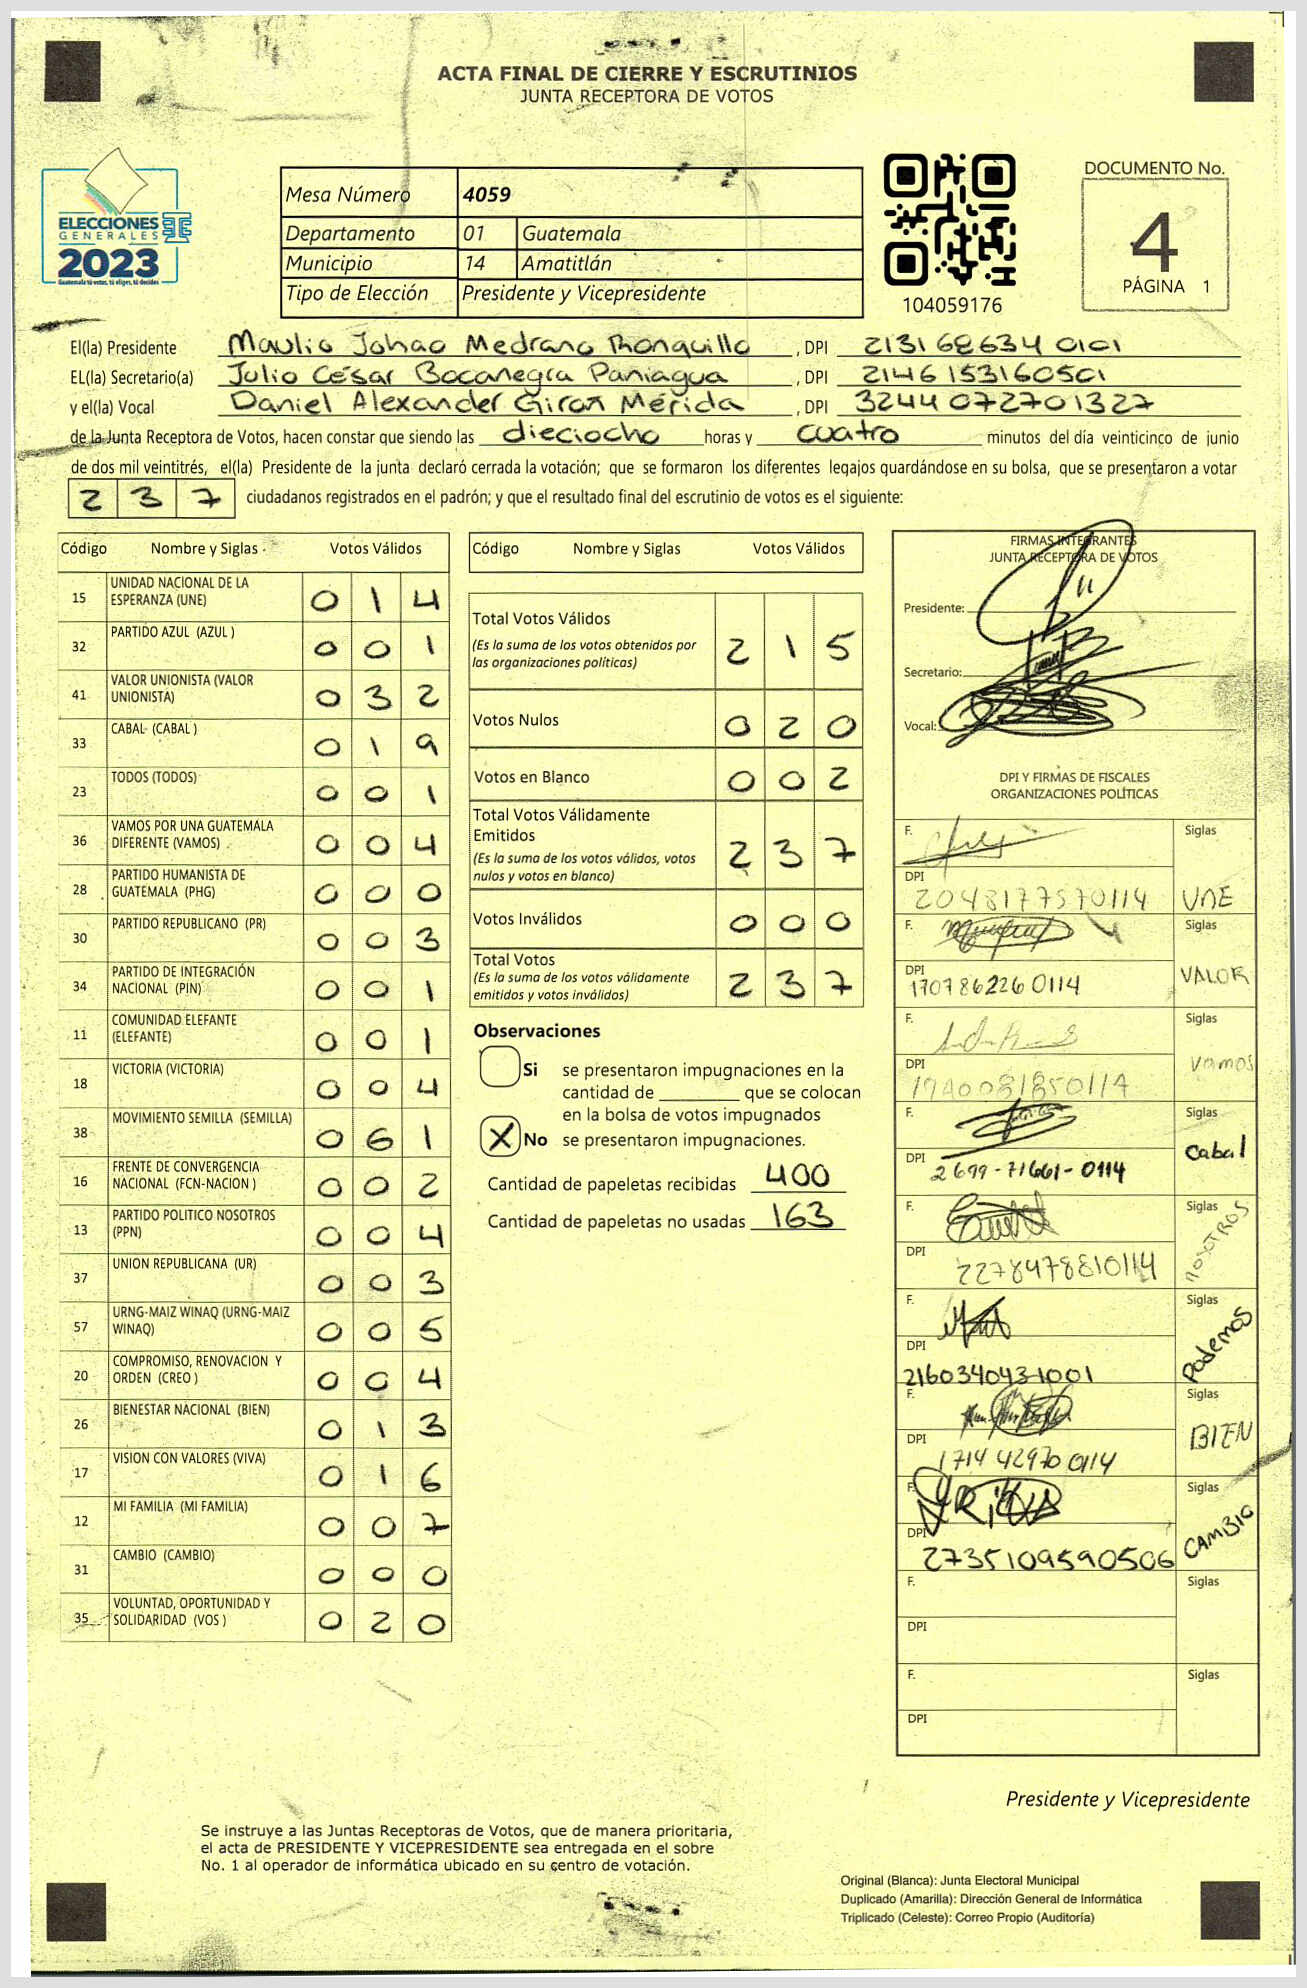 ACTA FINAL DE CIERRE Y ESCRUTINIOS
JUNTA RECEPTORA DE VOTOS
ELECCIONES
GENERALES
2023
Guatemala tú votas, tú eliges, tú decides
Mesa Número 4059
Departamento 01 Guatemala
Municipio 14 Amatitlán
Tipo de Elección Presidente y Vicepresidente
104059176
DOCUMENTO No.
4
PÁGINA 1
El(la) Presidente Maulio Johao Medrano Ronquillo , DPI 213168634 0101
EL(la) Secretario(a) Julio César Bocanegra Paniagua , DPI 2146153160501
y el(la) Vocal Daniel Alexander Girón Mérida , DPI 3244072701327
de la Junta Receptora de Votos, hacen constar que siendo las dieciocho horas y cuatro minutos del día veinticinco de junio
de dos mil veintitrés, el(la) Presidente de la junta declaró cerrada la votación; que se formaron los diferentes legajos guardándose en su bolsa, que se presentaron a votar
237 ciudadanos registrados en el padrón; y que el resultado final del escrutinio de votos es el siguiente:
Código Nombre y Siglas Votos Válidos
15 UNIDAD NACIONAL DE LA ESPERANZA (UNE) 014
32 PARTIDO AZUL (AZUL ) 001
41 VALOR UNIONISTA (VALOR UNIONISTA) 032
33 CABAL (CABAL ) 019
23 TODOS (TODOS) 001
36 VAMOS POR UNA GUATEMALA DIFERENTE (VAMOS) 004
28 PARTIDO HUMANISTA DE GUATEMALA (PHG) 000
30 PARTIDO REPUBLICANO (PR) 003
34 PARTIDO DE INTEGRACIÓN NACIONAL (PIN) 001
11 COMUNIDAD ELEFANTE (ELEFANTE) 001
18 VICTORIA (VICTORIA) 004
38 MOVIMIENTO SEMILLA (SEMILLA) 061
16 FRENTE DE CONVERGENCIA NACIONAL (FCN-NACION ) 002
13 PARTIDO POLITICO NOSOTROS (PPN) 004
37 UNION REPUBLICANA (UR) 003
57 URNG-MAIZ WINAQ (URNG-MAIZ WINAQ) 005
20 COMPROMISO, RENOVACION Y ORDEN (CREO ) 004
26 BIENESTAR NACIONAL (BIEN) 013
17 VISION CON VALORES (VIVA) 016
12 MI FAMILIA (MI FAMILIA) 007
31 CAMBIO (CAMBIO) 000
35 VOLUNTAD, OPORTUNIDAD Y SOLIDARIDAD (VOS ) 020
Código Nombre y Siglas Votos Válidos
Total Votos Válidos
(Es la suma de los votos obtenidos por las organizaciones políticas) 215
Votos Nulos 020
Votos en Blanco 002
Total Votos Válidamente Emitidos
(Es la suma de los votos válidos, votos nulos y votos en blanco) 237
Votos Inválidos 000
Total Votos
(Es la suma de los votos válidamente emitidos y votos inválidos) 237
Observaciones
Si se presentaron impugnaciones en la
cantidad de ________ que se colocan
en la bolsa de votos impugnados
X No se presentaron impugnaciones.
Cantidad de papeletas recibidas 400
Cantidad de papeletas no usadas 163
FIRMAS INTEGRANTES
JUNTA RECEPTORA DE VOTOS
Presidente:
Secretario:
Vocal:
DPI Y FIRMAS DE FISCALES
ORGANIZACIONES POLÍTICAS
F. Siglas
DPI 2048177570114 UNE
F. Siglas
DPI 1707862260114 VALOR
F. Siglas
DPI 1940081850114 Vamos
F. Siglas
DPI 2699-71661-0114 Cabal
F. Siglas
DPI 2278478810114 NOSOTROS
F. Siglas
DPI 2160340431001 Podemos
F. Siglas
DPI 1714429700114 BIEN
F. Siglas
DPI 2735109590506 CAMBIO
F. Siglas
DPI
F. Siglas
DPI
Presidente y Vicepresidente
Se instruye a las Juntas Receptoras de Votos, que de manera prioritaria,
el acta de PRESIDENTE Y VICEPRESIDENTE sea entregada en el sobre
No. 1 al operador de informática ubicado en su centro de votación.
Original (Blanca): Junta Electoral Municipal
Duplicado (Amarilla): Dirección General de Informática
Triplicado (Celeste): Correo Propio (Auditoría)